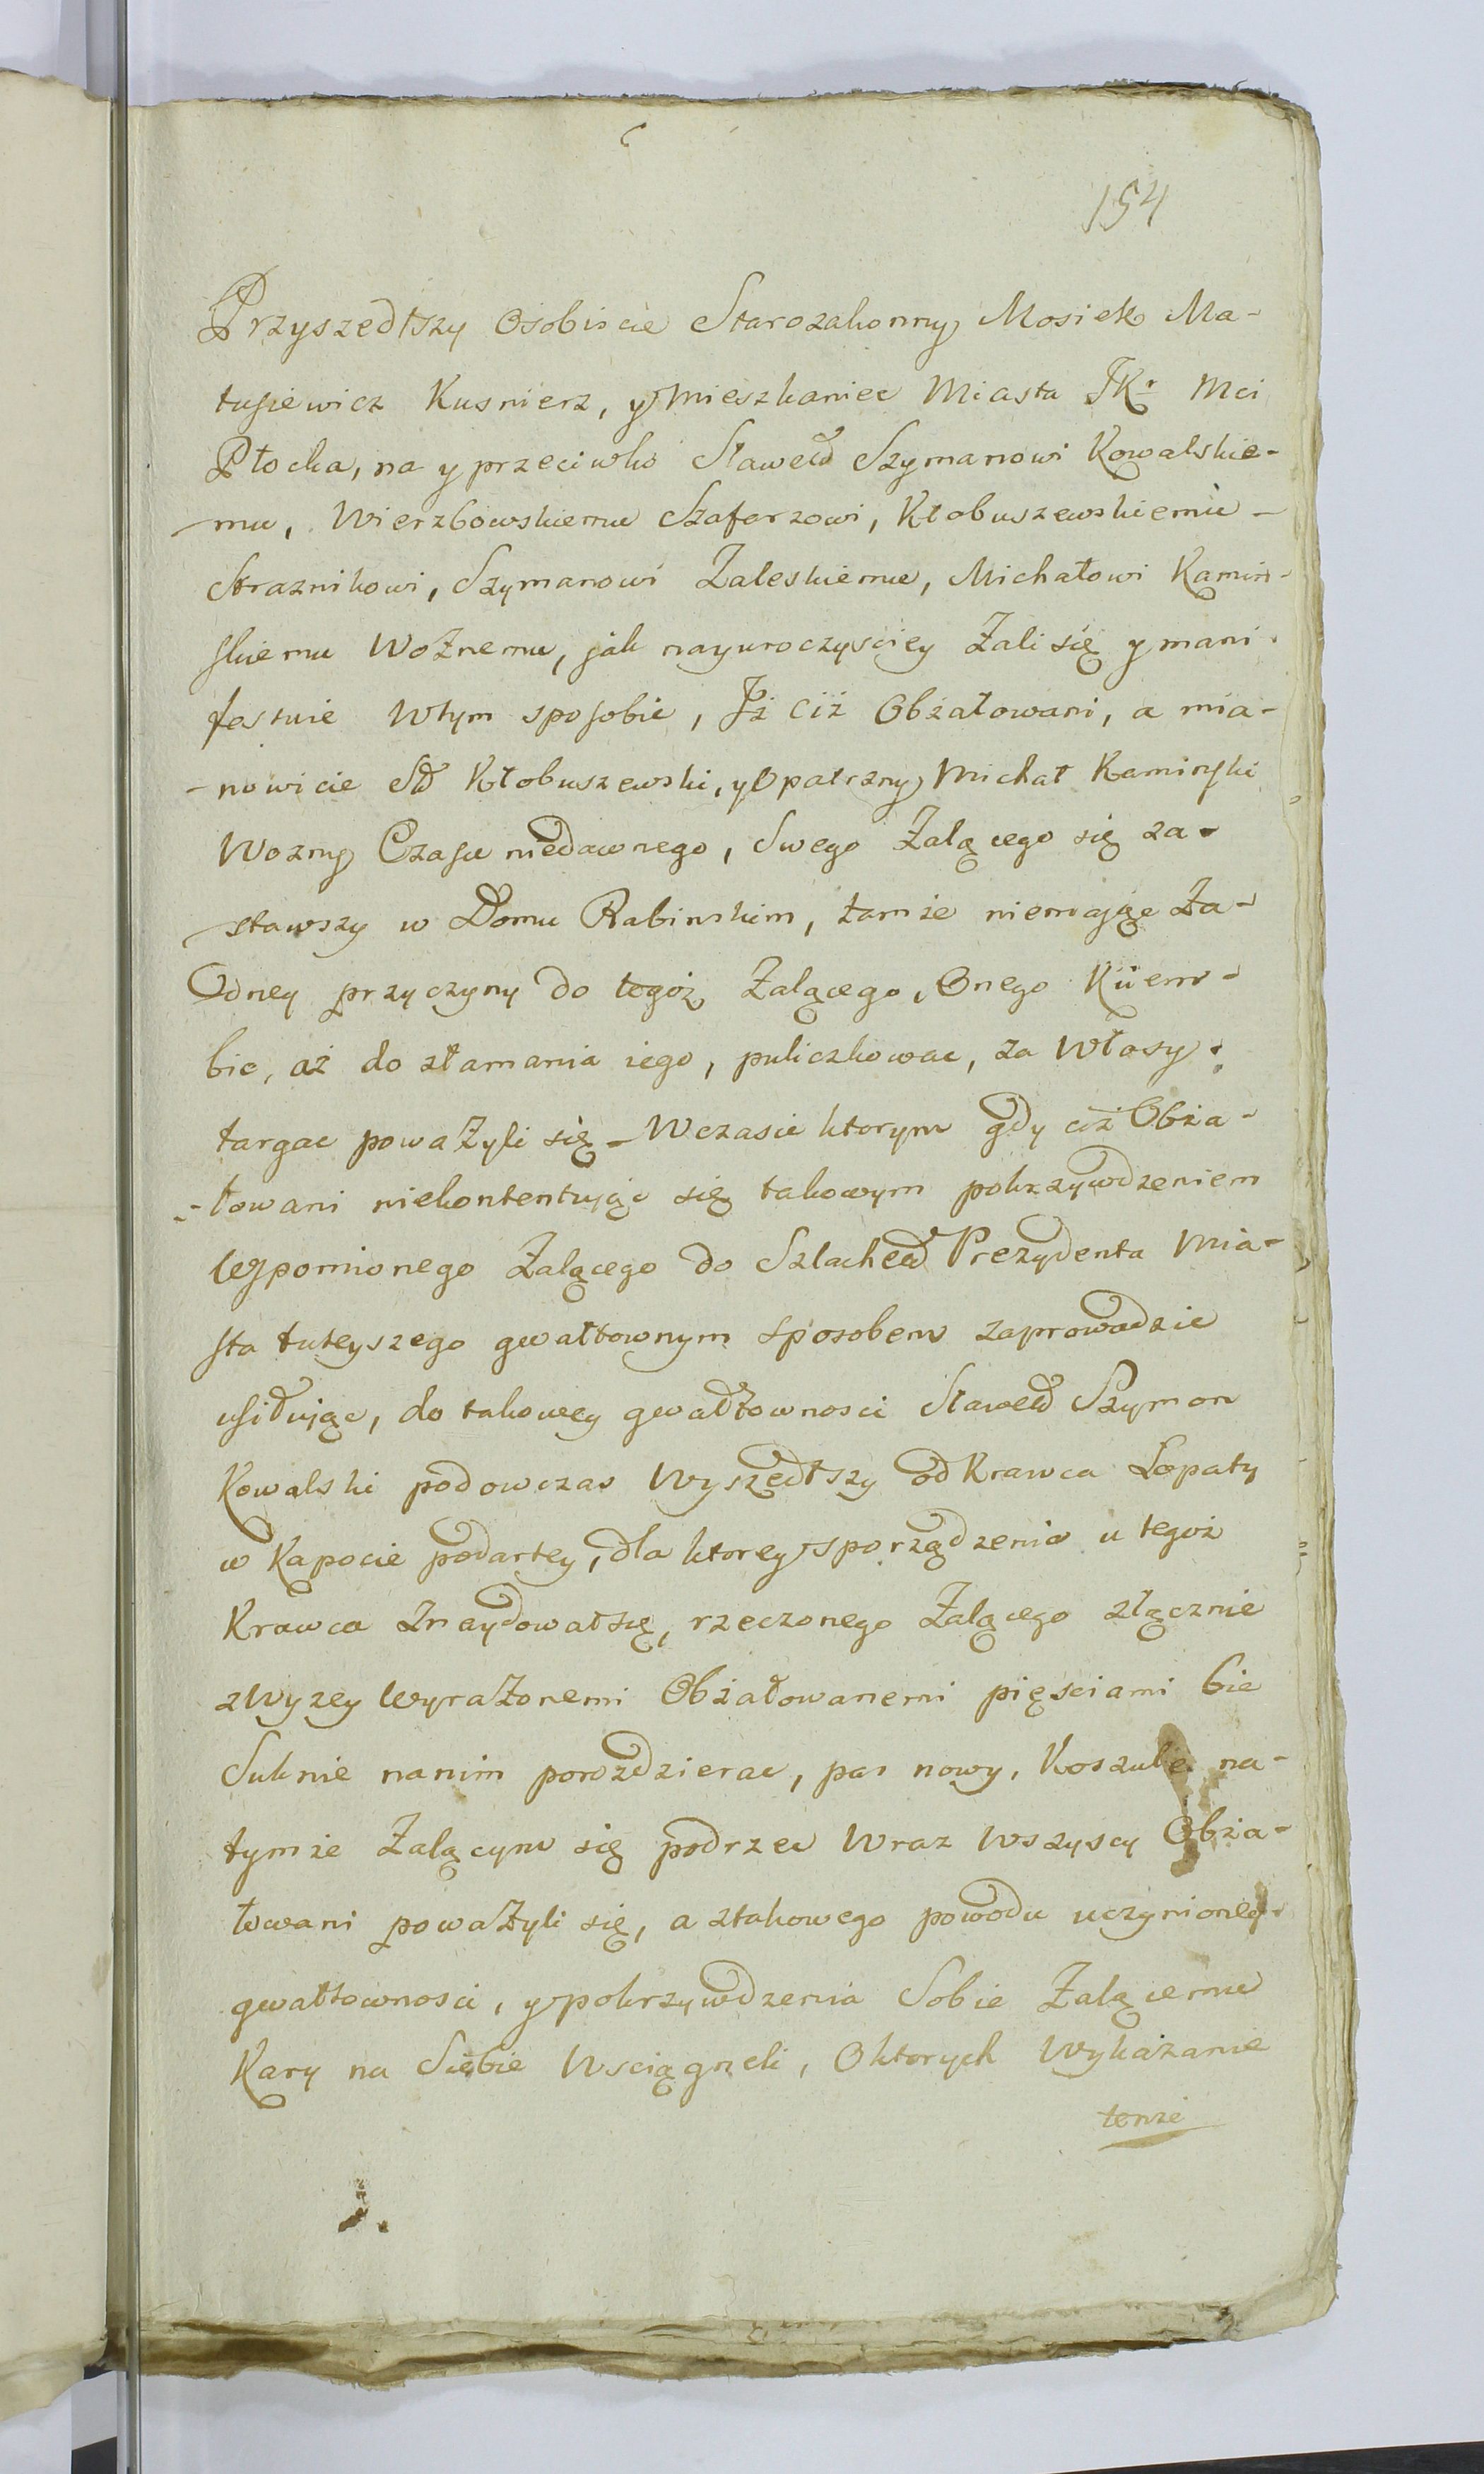 154
Przyszedłszy Osobiscie Starozakonny Mosiek Ma-
tusiewicz Kusnierz, y Mieszkaniec Miasta JKr Mci
Płocka, na y przeciwko Sławetd Szymanowi Kowalskie-
mu, Wierzbowskiemu Szafarzowi, Kłobuszewskiemu -
Straznikowi, Szymanowi Zaleskiemu, Michałowi Kamin-
skiemu Woznemu, jak nayuroczysciey Zali się y mani
festuie Wtym sposobie, Iż ciż Obżałowani, a mia-
- nowicie Sd Kłobuszewski, y Opatrzny Michał Kaminski
Wozny Czasu niedawnego, Swego Zalącego się za-
stawszy w Domu Rabinskim, tamże niemaiąc Ża-
dney przyczyny do tegoż Zalącego, Onego Kijem -
bic, aż do złamania iego, puliczkowac, za Włosy:
targac powazyli się - Wczasie ktorym gdy ciż Obża-
- łowani niekontentując się takowym pokrzywdzeniem
wspomionego Zalącego do Szlachetd Prezydenta Mia-
sta tuteyszego gwałtownym sposobem zaprowadzic
usiłując, do takowey gwałtownosci Sławetd Szymon
Kowalski podowczas Wyszedłszy od Krawca Łopaty
w Kapocie podartey, dla ktorey sporządzenia u tegoż
Krawca Znaydował się, rzeczonego Zalącego złącznie
zwyzey wyrazonemi Obżałowanemi pięsciami bic
Suknie nanim porozdzierac, pas nowy, Koszulę na-
tymże Zalącym się podrzec Wraz Wszyscy Obża-
łowani powazyli się, a ztakowego powodu uczynioney
gwałtownosci, y pokrzywdzenia Sobie Zalącemu
Kary na Siebie Wsciągneli, Oktorych Wykazanie
tenże